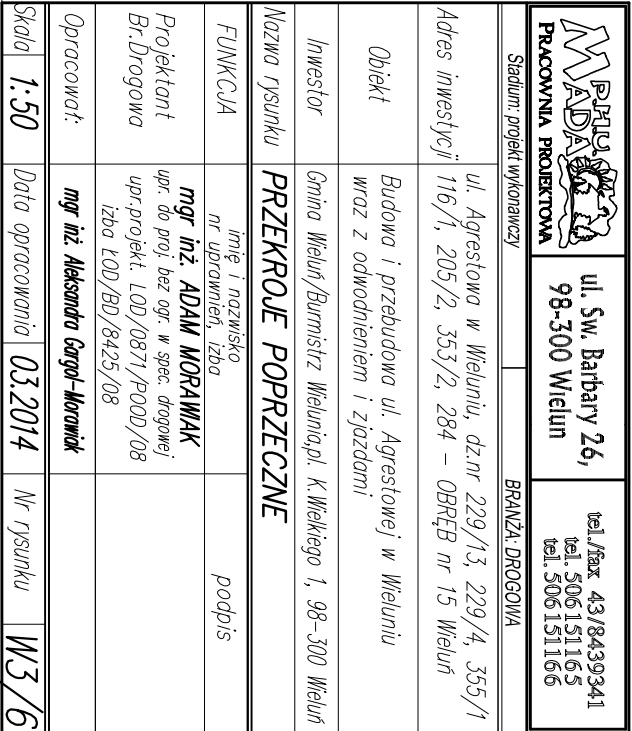 P.H.U.
MADA
PRACOWNIA PROJEKTOWA
ul. Sw. Barbary 26,
98-300 Wielun
tel./fax 43/8439341
tel. 506151165
tel. 506151166
Stadium: projekt wykonawczy
BRANŻA: DROGOWA
Adres inwestycji
ul. Agrestowa w Wieluniu, dz.nr 229/13, 229/4, 355/1
116/1, 205/2, 353/2, 284 – OBRĘB nr 15 Wieluń
Obiekt
Budowa i przebudowa ul. Agrestowej w Wieluniu
wraz z odwodnieniem i zjazdami
Inwestor
Gmina Wieluń/Burmistrz Wielunia,pl. K.Wielkiego 1, 98-300 Wieluń
Nazwa rysunku
PRZEKROJE POPRZECZNE
FUNKCJA
imię i nazwisko
nr uprawnień, izba
podpis
Projektant
Br.Drogowa
mgr inż. ADAM MORAWIAK
upr. do proj. bez ogr. w spec. drogowej
upr.projekt. LOD/0871/POOD/08
izba ŁOD/BD/8425/08
Opracował:
mgr inż. Aleksandra Gargol-Morawiak
Skala 1:50
Data opracowania 03.2014
Nr rysunku W3/6